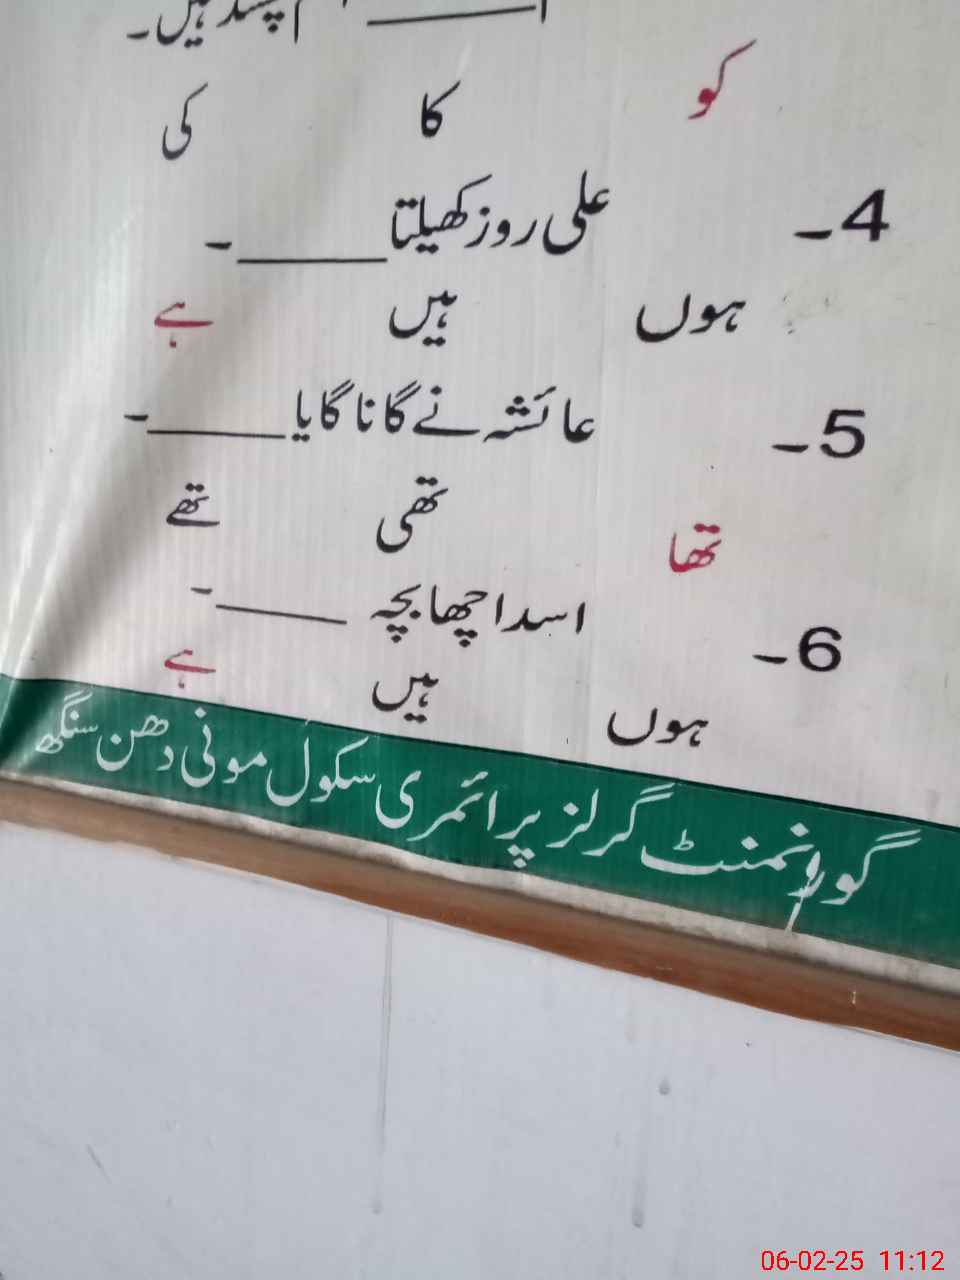 ـــــــ پسند ہیں۔
کو کا کی
4۔ علی روز کھیلتا ـــــــ ۔
ہوں ہیں ہے
5۔ عائشہ نے گانا گایا ـــــــ ۔
تھا تھی تھے
6۔ اسد اچھا بچہ ـــــــ ۔
ہوں ہیں ہے
گورنمنٹ گرلز پرائمری سکول مونی دھن سنگھ
06-02-25 11:12